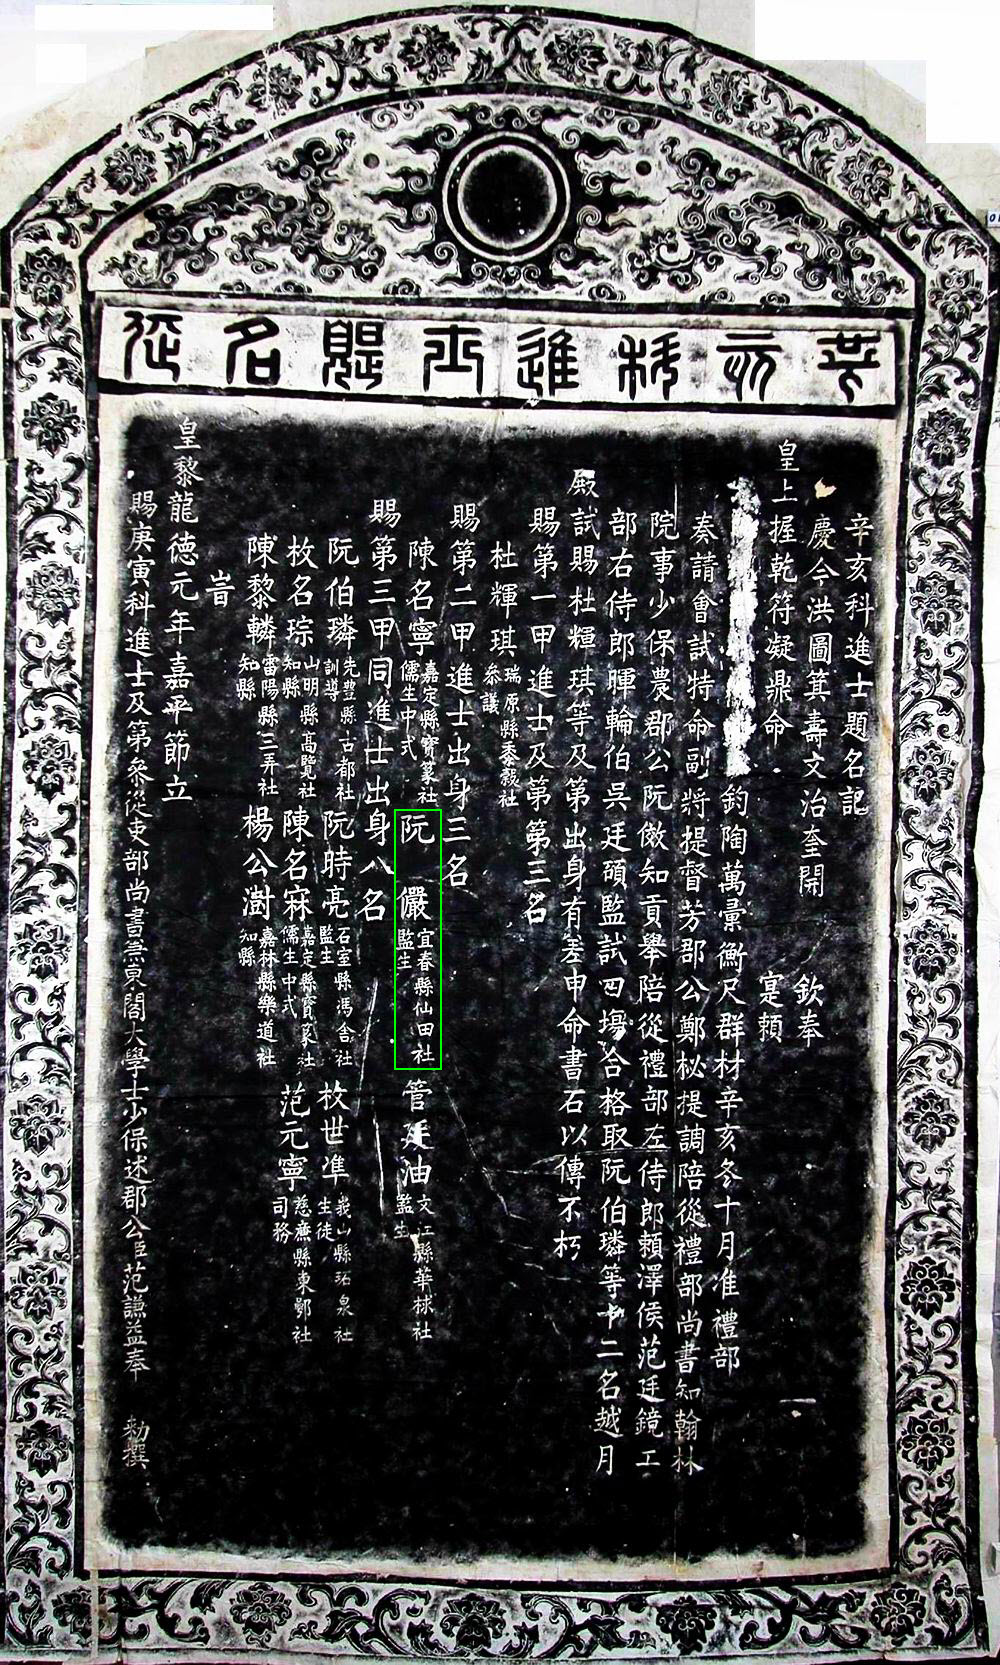 癸亥科進士賜名碑
辛亥科進士題名記
慶今洪圖箕壽文治奎開 欽奉
皇上握乾符凝鼎命 寔賴
鈞陶萬彚衡尺群材辛亥冬十月准禮部
奏請會試特命副將提督芳郡公鄭柲提調陪從禮部尚書知翰林
院事少保農郡公阮儆知貢舉陪從禮部左侍郎賴澤侯范廷鏡工
部右侍郎暉輪伯吳廷碩監試四場合格取阮伯璘等十二名越月
殿試賜杜輝琪等及第出身有差申命書石以傳不朽
賜第一甲進士及第第三名
杜輝琪 瑞原縣黍穀社 參議
賜第二甲進士出身三名
陳名寧 嘉定縣寶篆社 儒生中式 阮儼 宜春縣仙田社 監生 管廷油 文江縣華梂社 監生
賜第三甲同進士出身八名
阮伯璘 先豐縣古都社 訓導 阮時亮 石室縣馮舍社 監生 枚世準 峩山縣㳓泉社 生徒
枚名琮 山明縣高覽社 知縣 陳名寀 嘉定縣寶篆社 儒生中式 范元寧 慈廉縣東鄂社 司務
陳黎轔 雷陽縣三弄社 知縣 楊公澍 嘉林縣樂道社 知縣
旹
皇黎龍德元年嘉平節立
賜庚寅科進士及第參從吏部尚書兼東閣大學士少保述郡公臣范謙益奉 勑撰